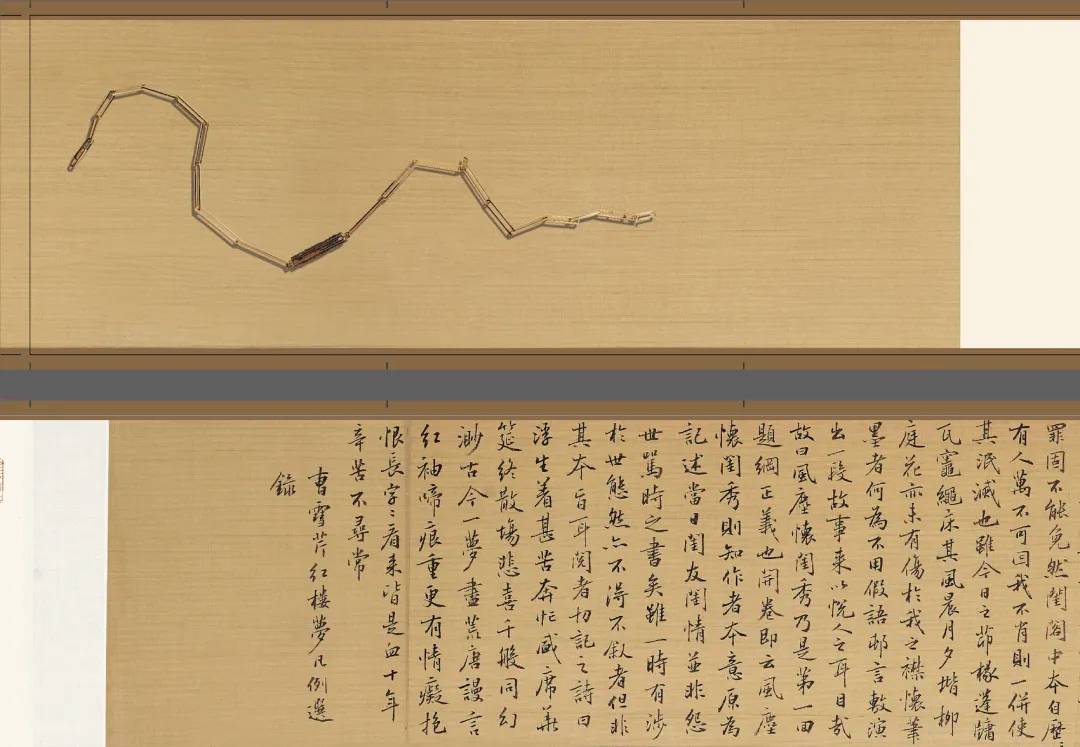 罪固不能免然閨閣中本自歷〻
有人萬不可因我不肖則一併使
其泯滅也雖今日之茆椽蓬牖
瓦竈繩床其風晨月夕堦柳
庭花亦未有傷於我之襟懷筆
墨者何為不用假語邨言敷演
出一段故事來以悅人之耳目哉
故曰風塵懷閨秀乃是第一回
題綱正義也開卷即云風塵
懷閨秀則知作者本意原為
記述當日閨友閨情並非怨
世罵時之書矣雖一時有涉
於世態然亦不得不敘者但非
其本旨耳閱者切記之詩曰
浮生着甚苦奔忙盛席華
筵終散塲悲喜千般同幻
渺古今一夢盡荒唐謾言
紅袖啼痕重更有情癡抱
恨長字〻看來皆是血十年
辛苦不尋常
曹雪芹紅樓夢凡例選
錄